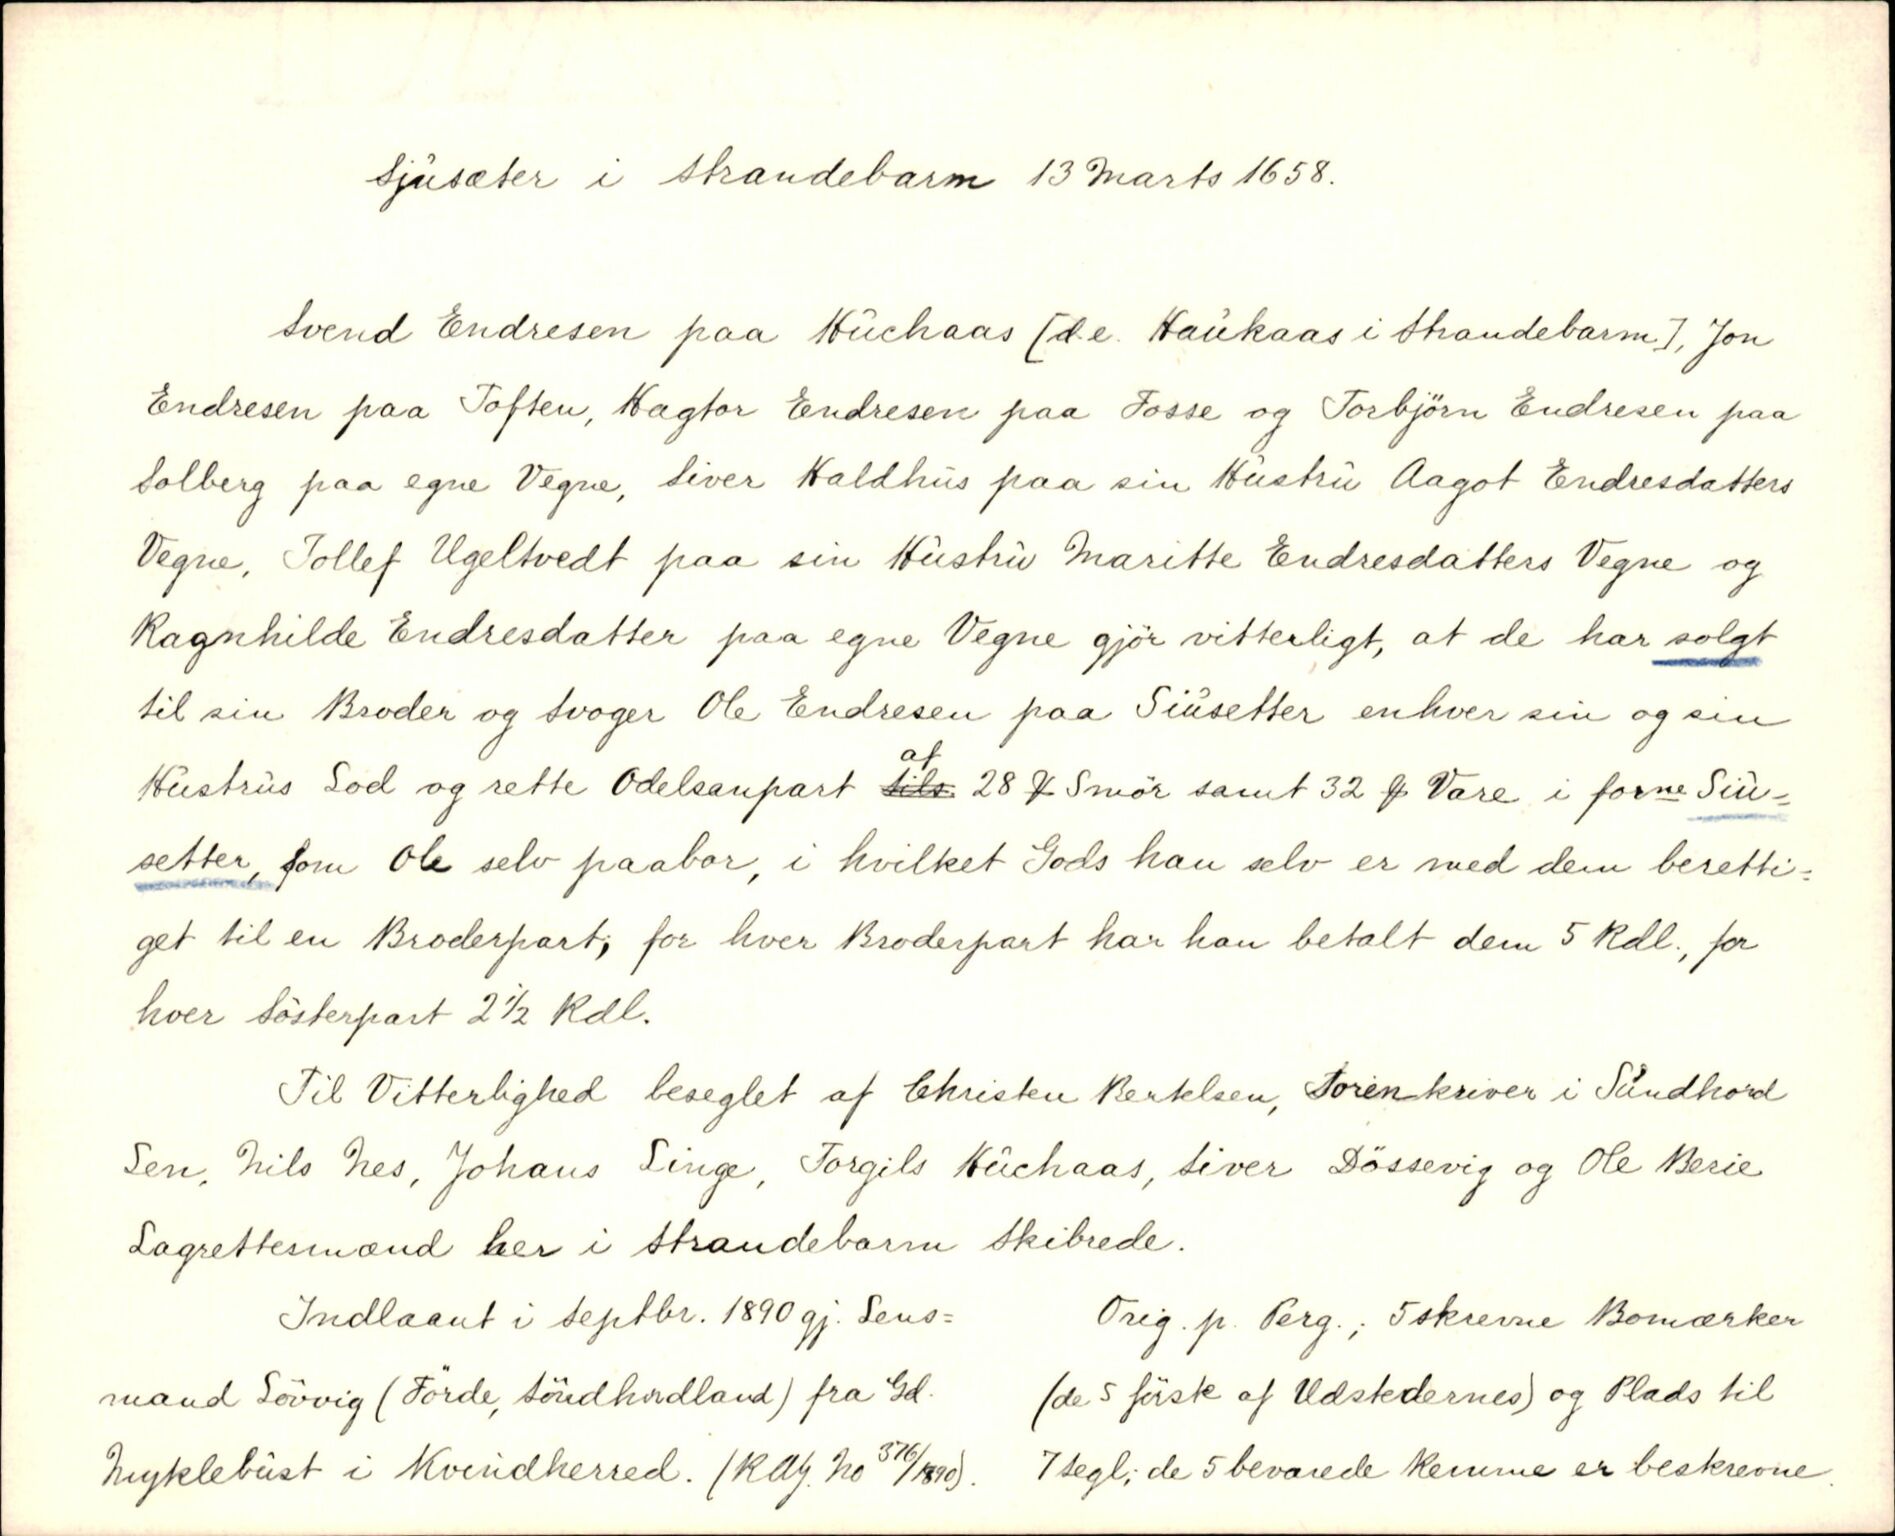 Sjûsæter i Strandebarm 13 Marts 1658.
Svend Endresen paa Hûchaas [d.e. Haûkaas i Strandebarm], Jon
Endresen paa Toften, Hagtor Endresen paa Fosse og Torbjörn Endresen paa
Solberg paa egne Vegne, Siver Haldhûs paa sin Hûstrû Aagot Endresdatters
Vegne, Tollef Ugeltvedt paa sin Hûstrû Maritte Endresdatters Vegne og
Ragnhilde Endresdatter paa egne Vegne gjör vitterligt, at de har solgt
til sin Broder og Svoger Ole Endresen paa Siûsetter enhver sin og sin
Hûstrûs Lod og rette Odelsanpart af 28 ℔ Smör samt 32 ℔ Vare i forne Siû=
setter, som Ole selv paabor, i hvilket Gods han selv er med dem beretti=
get til en Broderpart; for hver Broderpart har han betalt dem 5 Rdl., for
hver Sösterpart 2 1/2 Rdl.
Til Vitterlighed beseglet af Christen Bertelsen, Sorenskriver i Sûndhord
Len, Nils Nes, Johans Linge, Torgils Hûchaas, Siver Dössevig og Ole Berie
Lagrettesmænd her i Strandebarm Skibrede.
Indlaant i Septbr. 1890 gj. Lens=
mand Lövvig (Förde, Söndhordland) fra Gd.
Myklebûst i Kvindherred. (RA Nj. No 376/1890).
Orig. p. Perg.; 5 skrevne Bomærker
(de 5 förste af Udstedernes) og Plads til
7 Segl; de 5 bevarede Remme er beskrevne.